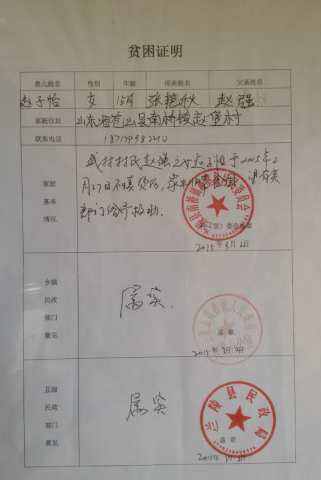 贫困证明
患儿姓名 性别 年龄 母亲姓名 父亲姓名
赵子怡 女 15月 张艳秋 赵强
家庭住处 山东省苍山县南桥镇赵堡村
联系电话
家庭基本情况
我村村民赵强之女赵子怡于2015年2
月27日不慎烫伤，家
部门给予救助。
村（居）委会盖章
2015年3月
乡镇民政部门意见
属实
盖章
2015年
县级民政部门意见
属实
兰陵县民政局
盖章
2015年